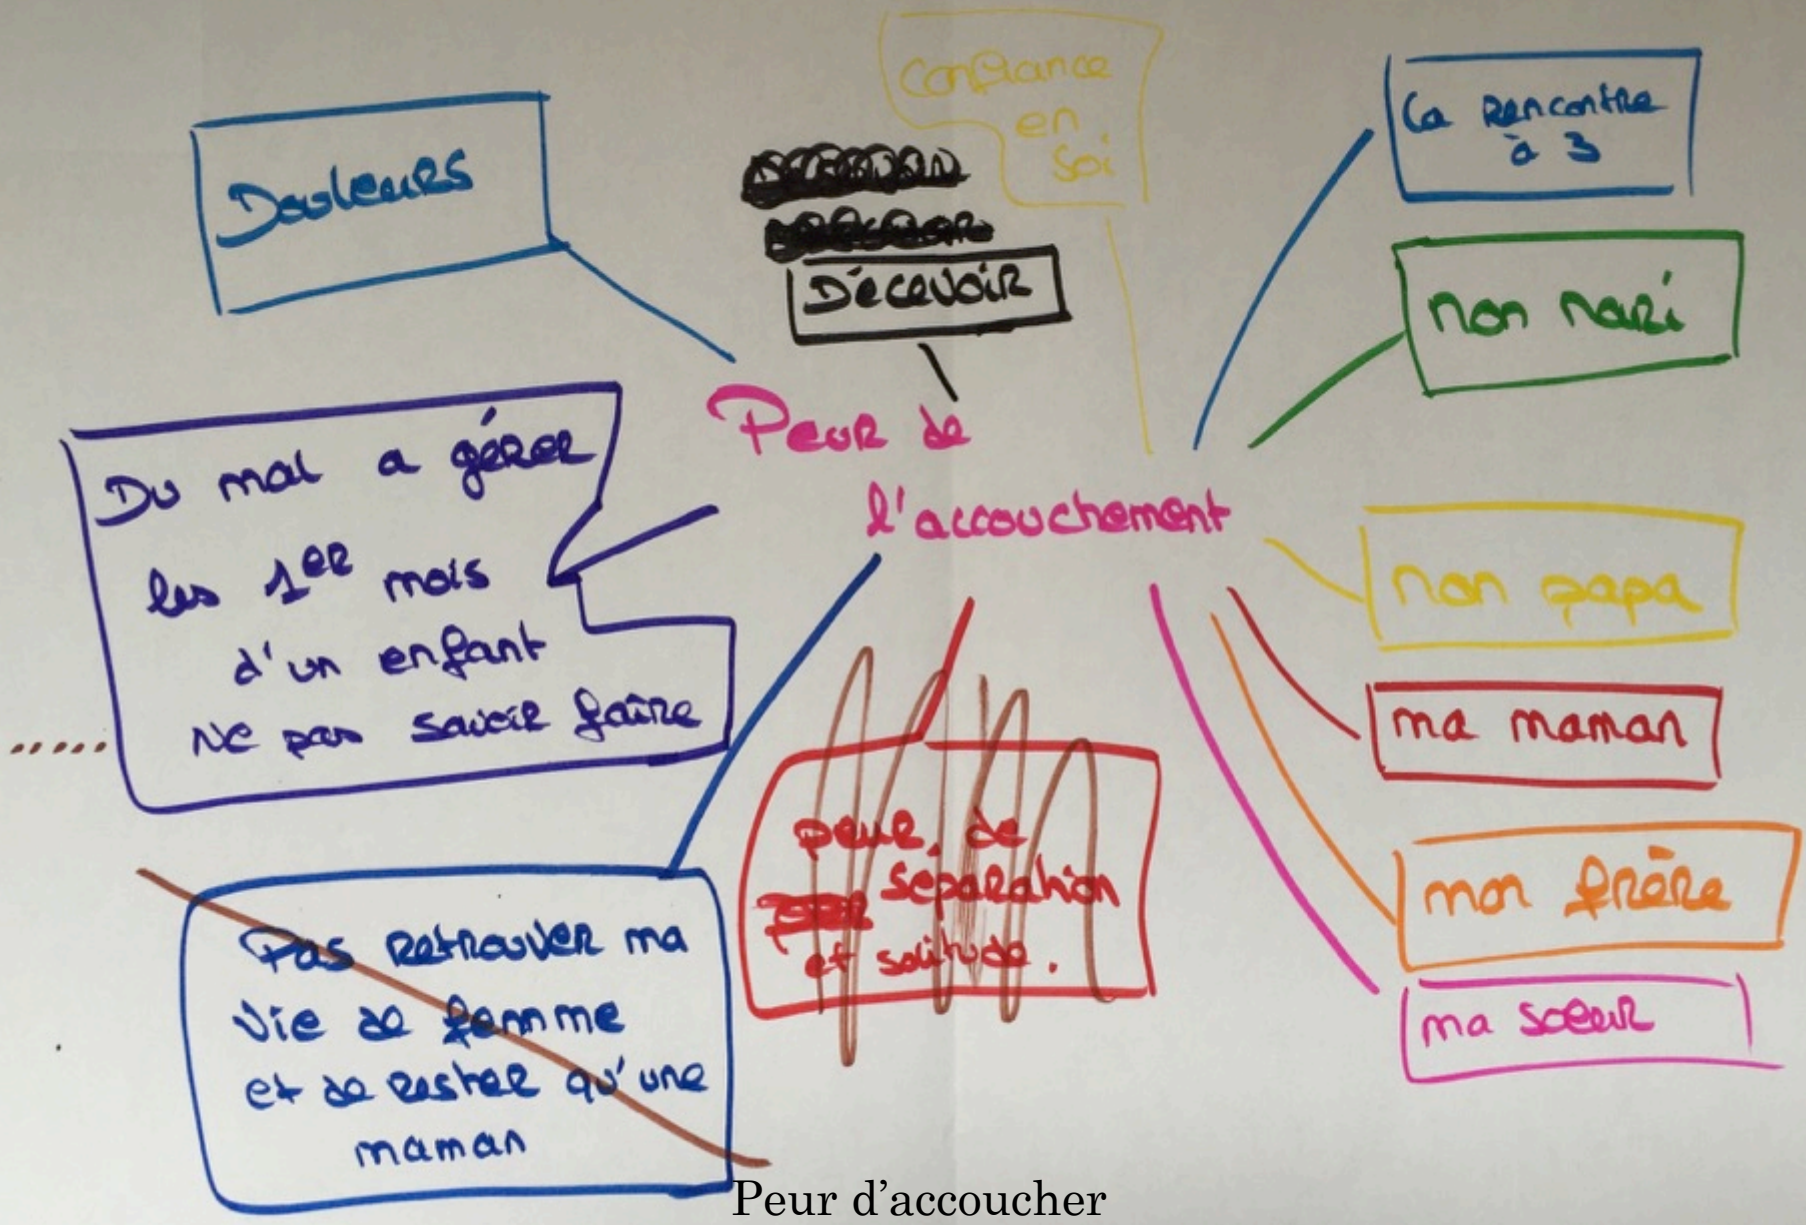 Confiance
en
soi
Douleurs
Décevoir
La rencontre
à 3
mon mari
Peur de
l'accouchement
Du mal a gérer
les 1er mois
d'un enfant
Ne pas savoir faire
mon papa
ma maman
peur de
séparation
et solitude.
mon frère
ma soeur
Pas retrouver ma
vie de femme
et de rester qu'une
maman
Peur d'accoucher